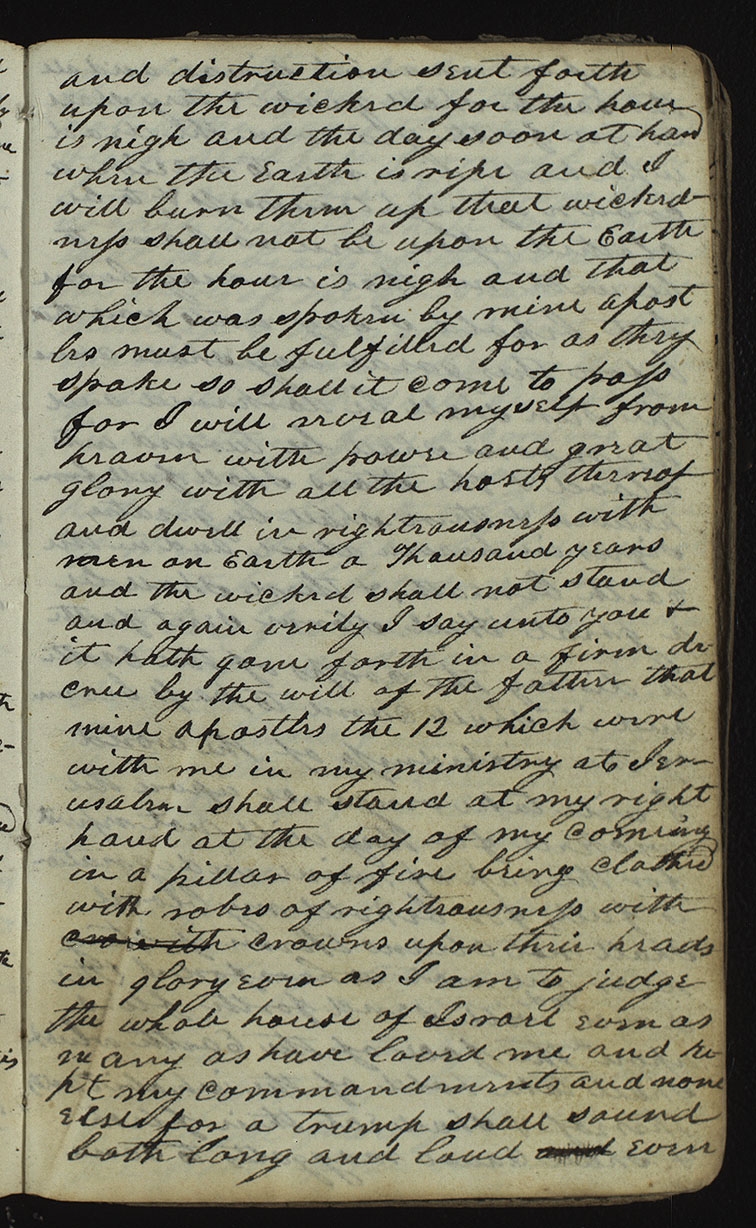 and distruction sent forth
upon the wicked for the hour
is nigh and the day soon at hand
when the Earth is ripe and I
will burn them up that wicked-
ness shall not be upon the Earth
for the hour is nigh and that
which was spoken by mine apost
les must be fulfilled for as they
spake so shall it come to pass
for I will reveal myself from
heaven with power and great
glory with all the hosts thereof
and dwell in righteousness with
men on Earth a Thousand years
and the wicked shall not stand
and again verily I say unto you &
it hath gone forth in a firm de
cree by the will of the father that
mine apostles the 12 which were
with me in my ministry at Jer-
usalem shall stand at my right
hand at the day of my coming
in a pillar of fire being clothed
with robes of righteousness with
cro with crowns upon their heads
in glory even as I am to judge
the whole house of Israel even as
many as have loved me and ke
pt my commandments and none
else for a trump shall sound
both long and loud and even